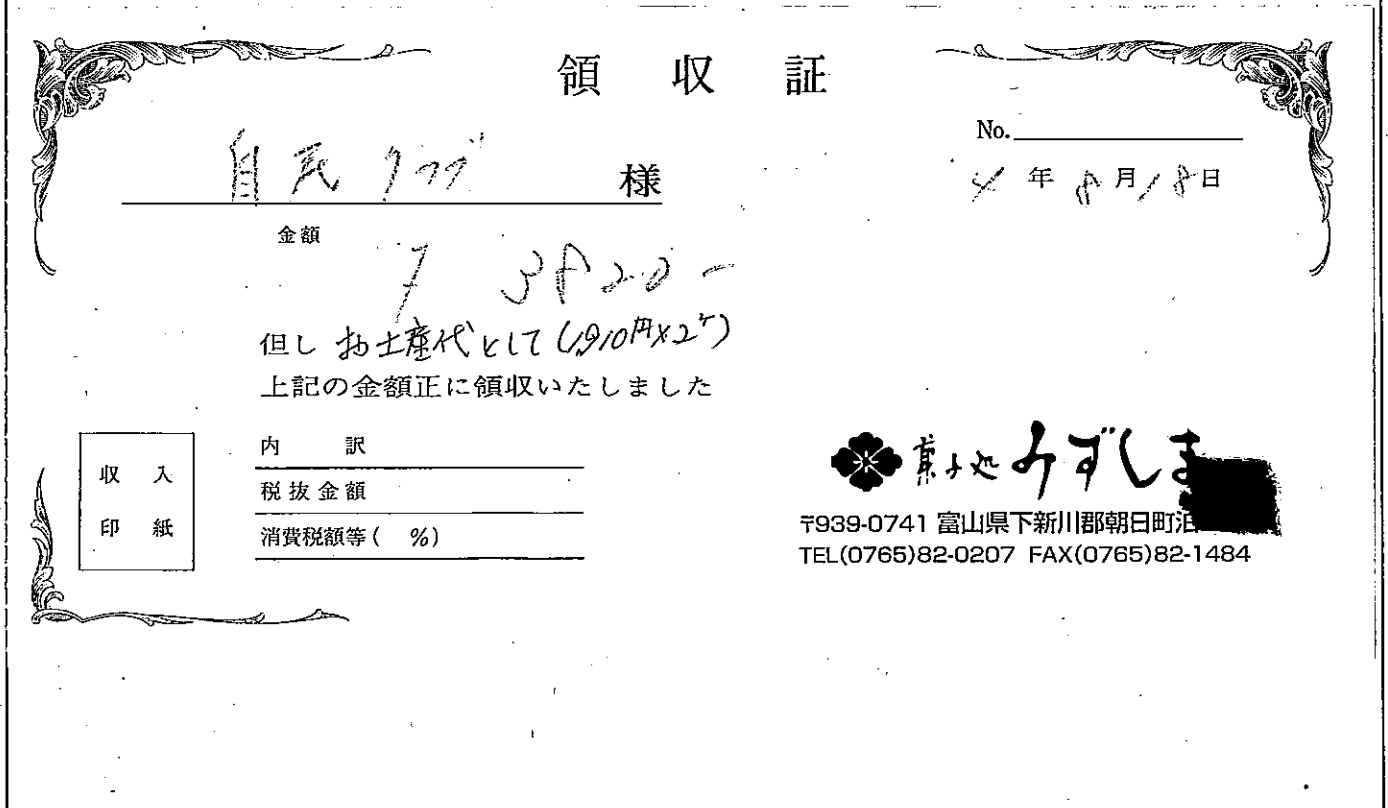 領収証
No.
自民クラブ 様
4年8月18日
金額
¥3820-
但し お土産代として(1,910円×2ケ)
上記の金額正に領収いたしました
収入
印紙
内訳
税抜金額
消費税額等( %)
菓子処 みずしま
〒939-0741 富山県下新川郡朝日町泊
TEL(0765)82-0207 FAX(0765)82-1484